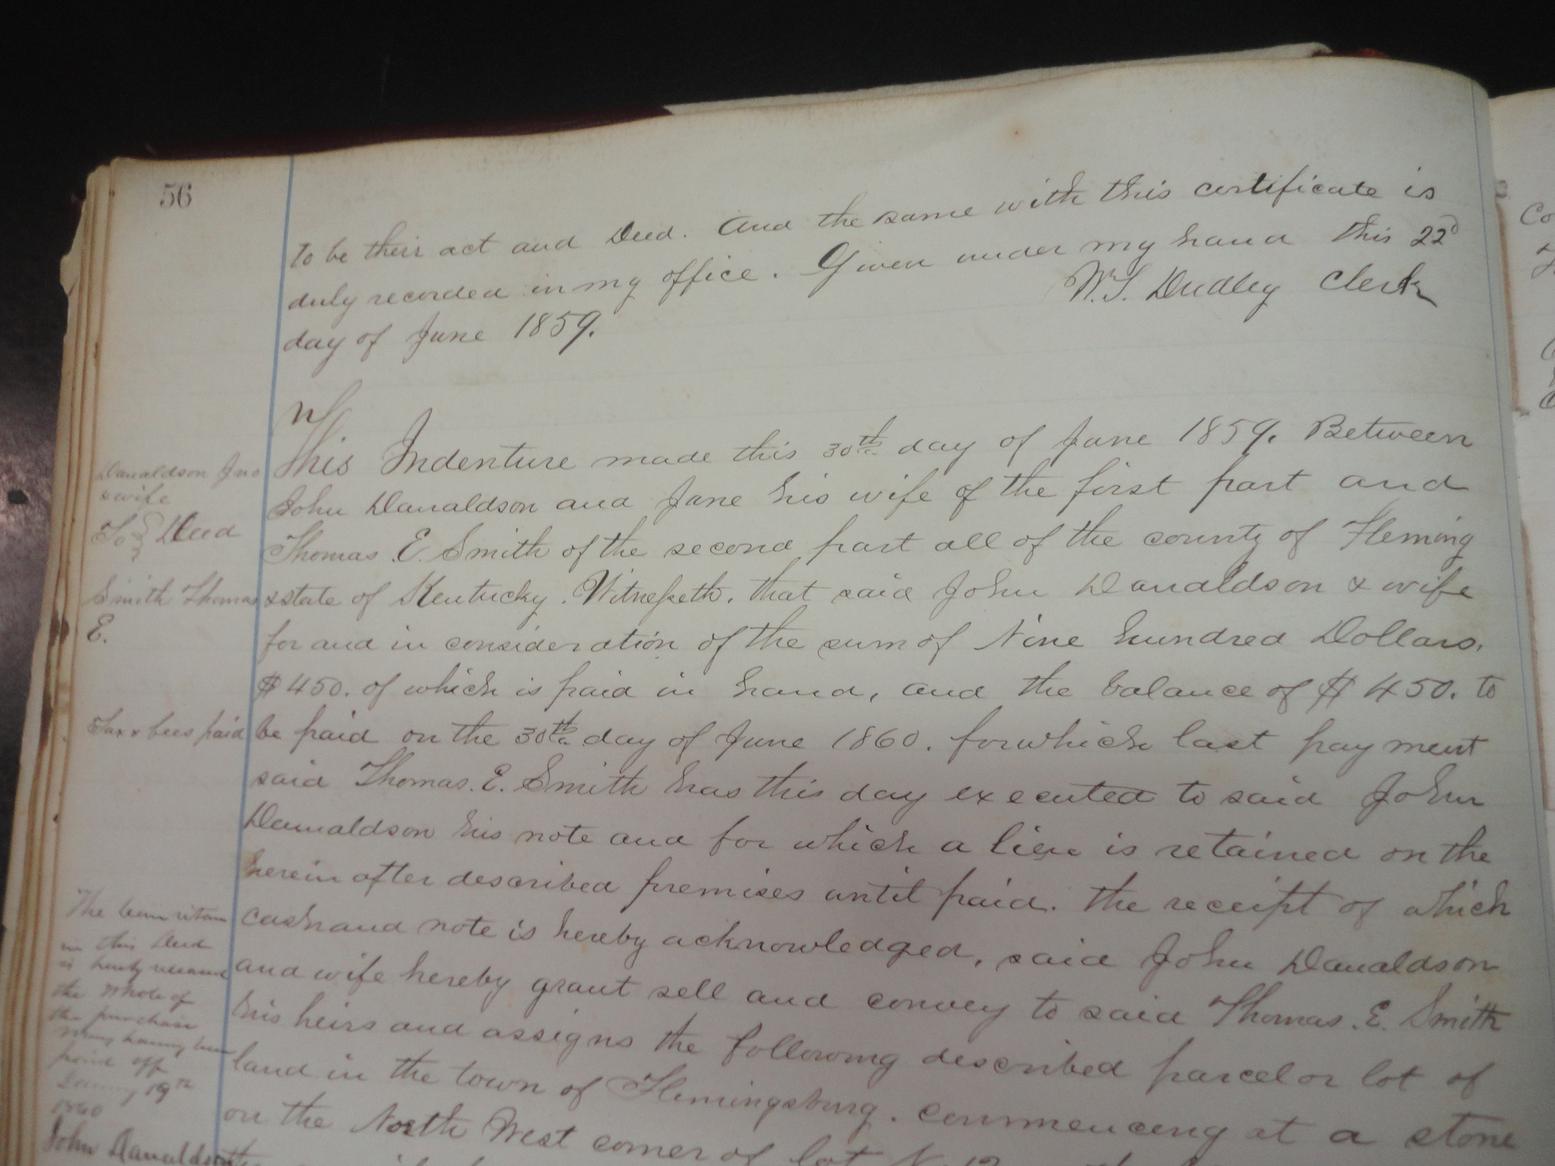 56
to be their act and Deed. And the same with this certificate is
duly recorded in my office. Given under my hand this 22d
day of June 1859.
W.S. Dudley Clerk
This Indenture made this 30th day of June 1859. Between
John Danaldson and Jane his wife of the first part and
Thomas. E. Smith of the second part all of the county of Fleming
& state of Kentucky. Witnesseth. that said John Danaldson & wife
for and in consideration of the sum of Nine hundred Dollars.
$450. of which is paid in hand, and the balance of $450. to
be paid on the 30th day of June 1860. for which last payment
said Thomas. E. Smith has this day executed to said John
Danaldson his note and for which a lien is retained on the
herein after described premises until paid. the receipt of which
cash and note is hereby acknowledged, said John Danaldson
and wife hereby grant sell and convey to said Thomas. E. Smith
his heirs and assigns the following described parcel or lot of
land in the town of Flemingsburg. commencing at a stone
on the North West corner of lot N. 12
Danaldson Jno
& wife
To Deed
Smith Thomas
E.
Tax & fees paid
The lien retain
in this Deed
is hereby
the whole of
the purchase
money having been
paid off
19th
1860
John Danaldson